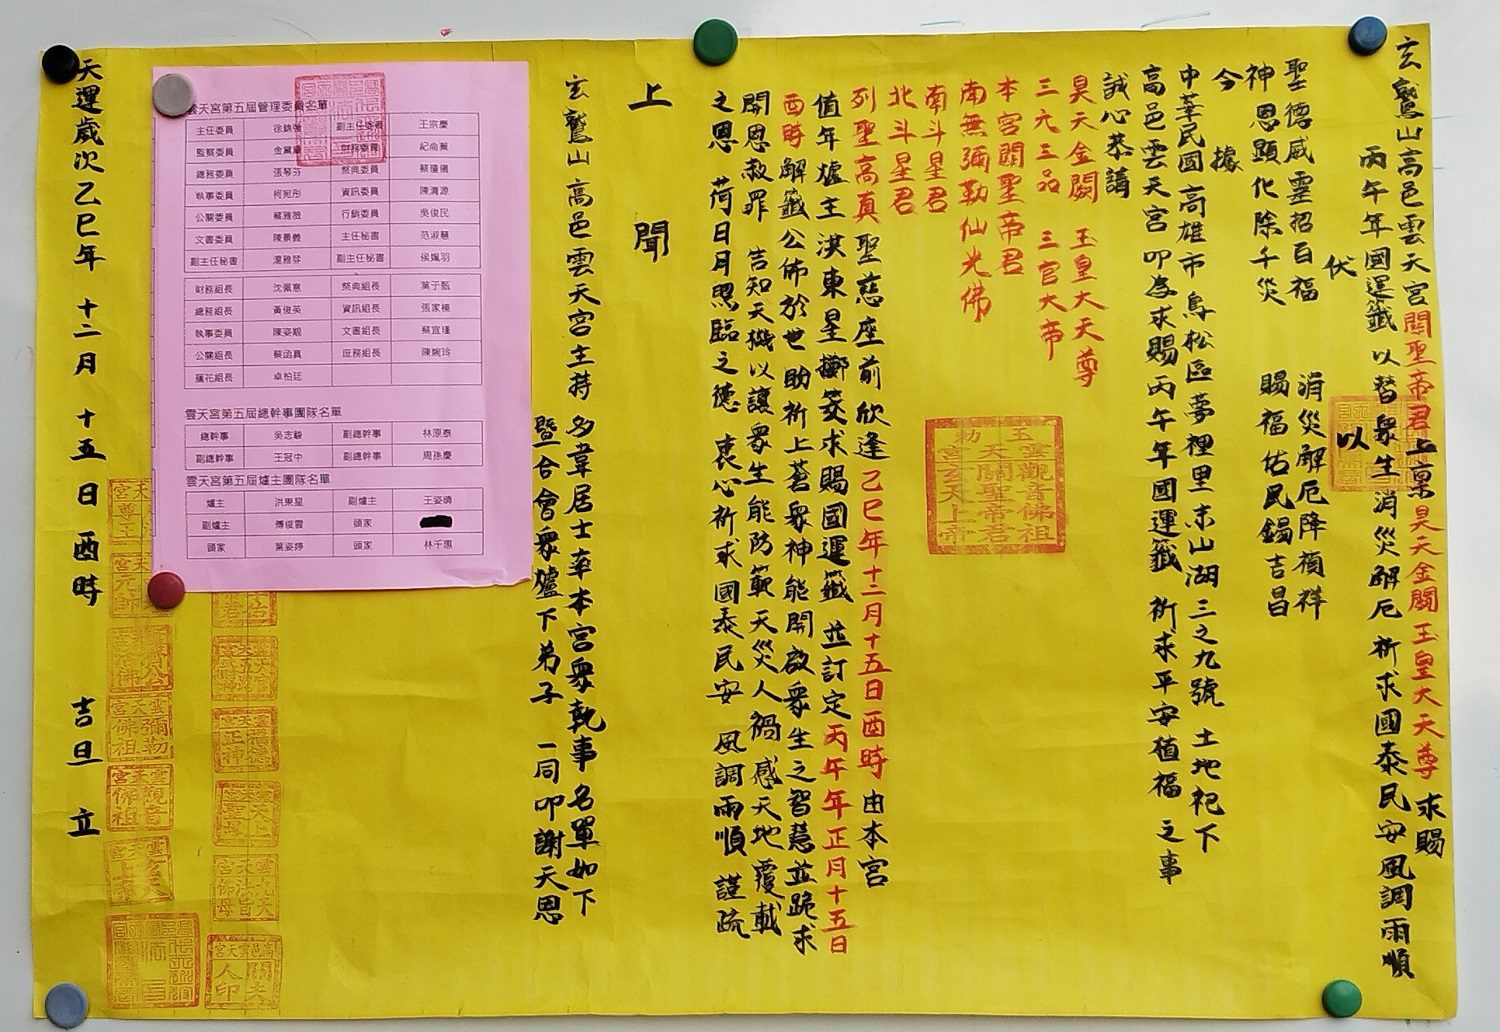 玄鷲山高邑雲天宮關聖帝君上稟昊天金闕玉皇大天尊 求賜
丙午年國運籤 以替眾生消災解厄祈求國泰民安風調雨順
伏 以
聖德威靈招百福 消災解厄降禎祥
神恩顯化除千災 賜福佑民錫吉昌
今 據
中華民國高雄市鳥松區夢裡里赤山湖三之九號 土地祀下
高邑雲天宮 叩為求賜丙午年國運籤 祈求平安植福 之事
誠心恭請
昊天金闕 玉皇大天尊
三元三品 三官大帝
本宮關聖帝君
南無彌勒仙光佛
南斗星君
北斗星君
列聖高真 聖慈座前欣逢乙巳年十二月十五日酉時由本宮
值年爐主淇東星擲筊求賜國運籤並訂定丙午年正月十五日
酉時解籤公佈於世盼祈上蒼眾神能開啟眾生之智慧並跪求
開恩赦罪 告知天機以讓眾生能防範天災人禍感天地覆載
之恩 荷日月照臨之德 衷心祈求國泰民安 風調雨順 謹疏
上 聞
玄鷲山高邑雲天宮主持 名葦居士率本宮眾執事名單如下
暨合會眾爐下弟子 一同叩謝天恩
雲天宮第五屆管理委員名單
主任委員 徐錦強 副主任委員 王宗慶
監察委員 財務委員
總務委員 張琴芬 祭典委員 蔡瓊儀
執事委員 柯宛彤 資訊委員 陳清源
公關委員 蔡雅薇 行銷委員 吳俊民
文書委員 陳景義 主任秘書 范淑慧
副主任秘書 湯雅琴 副主任秘書 侯姵羽
財務組長 沈佩意 祭典組長 葉于甄
總務組長 黃俊英 資訊組長 張家榛
執事委員 陳姿靜 文書組長 蔡宜瑾
公關組長 蔡函真 庶務組長 陳婉玲
蓮花組長 卓柏廷
雲天宮第五屆總幹事團隊名單
總幹事 吳志驊 副總幹事 林原泰
副總幹事 王冠中 副總幹事 周孫慶
雲天宮第五屆爐主團隊名單
爐主 洪東星 副爐主 王姿晴
副爐主 傅俊雲 頭家
頭家 葉姿婷 頭家 林千惠
天運歲次乙巳年 十二月 十五日酉時 吉旦 立
玉勅
雲天宮
觀音佛祖
關聖帝君
玄天上帝
雲天宮
彌勒佛祖
雲天宮
觀音佛祖